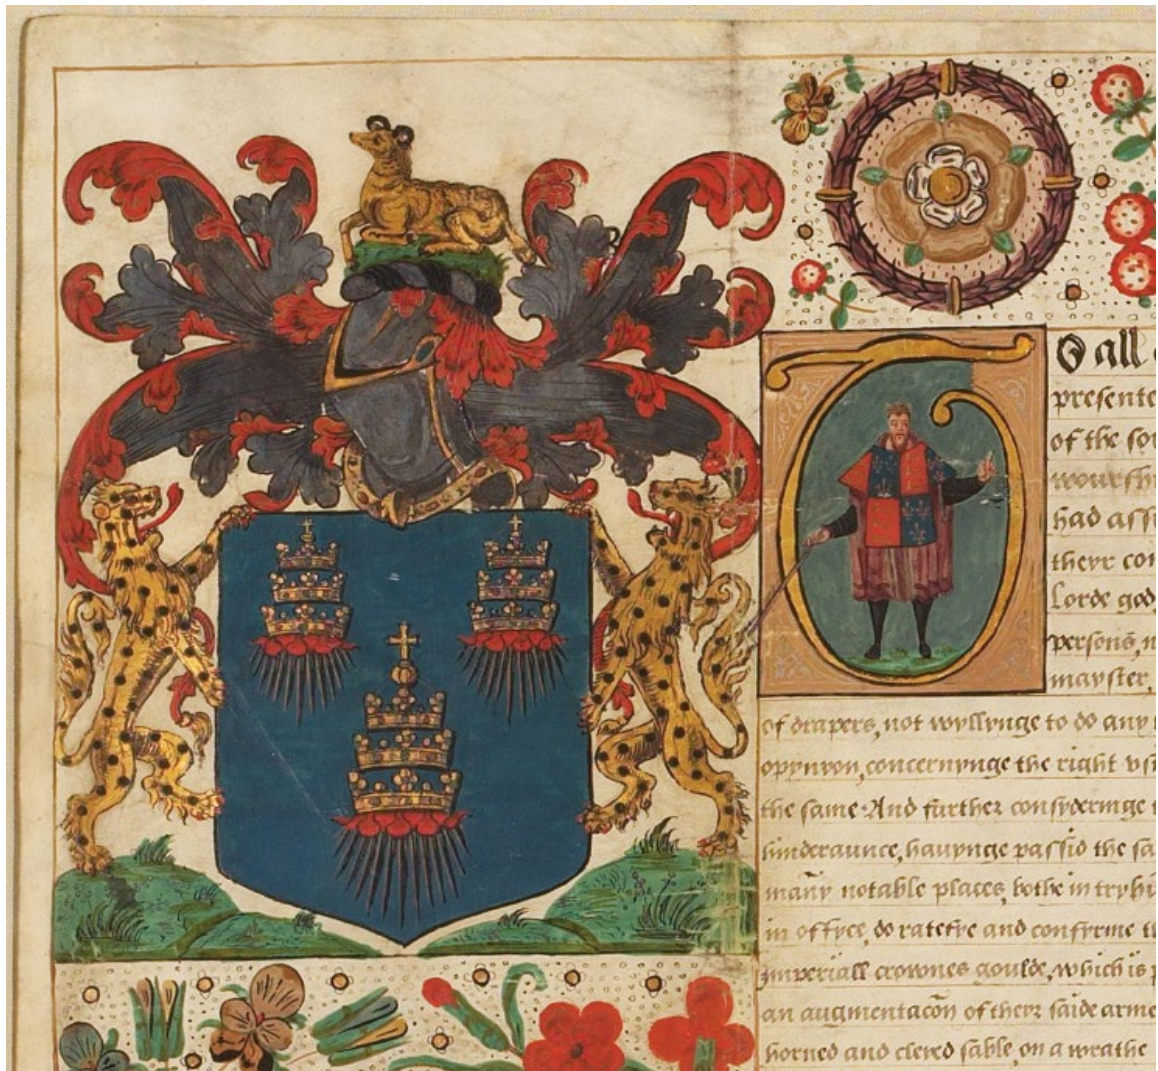 To all
presente
of the so
wourshi
had assi
theyr con
Lorde god,
persons, n
mayster,
of drapers, not wyllynge to do any
opynyon, concernynge the right vs
the same. And further consyderinge
hinderaunce, havynge passid the sa
many notable places, bothe in tryh
in offyce, do ratefye and confyrme th
imperiall crownes goulde, which is p
an augmentacōn of theyr saide arme
horned and cleyed sable, on a wrathe